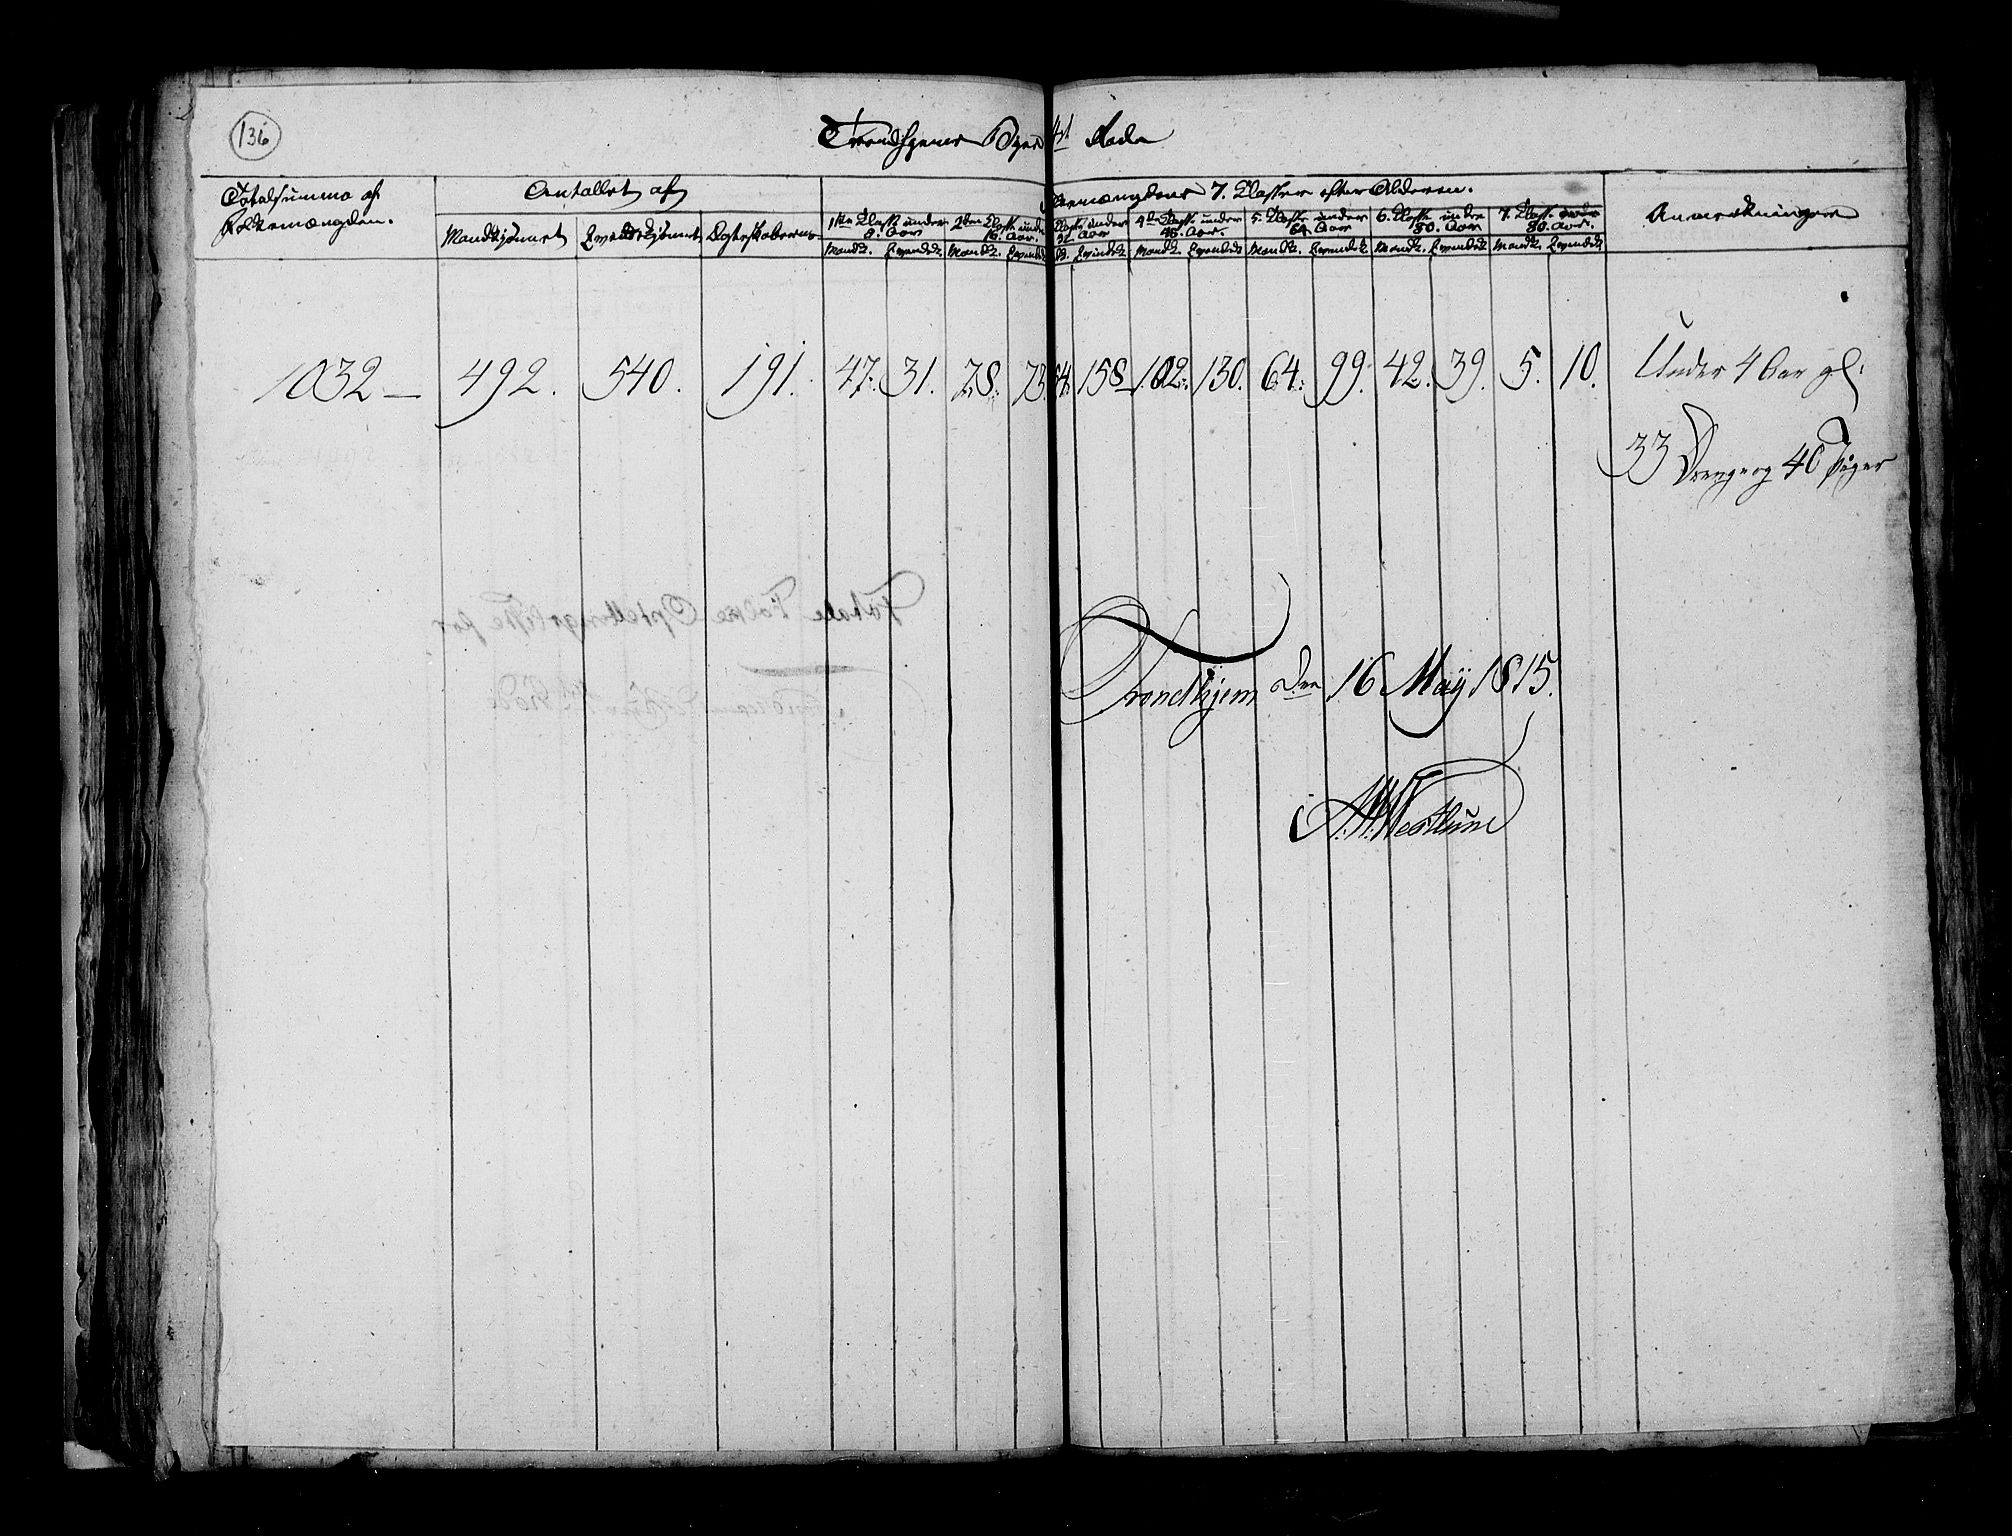 136
Trondhjems Byes 4de Rode
Totalsumma af
Folkemængden.
Antallet af
Mandkjønnet Qvindekjønnet Ægteskaberne
Folkemængdens 7. Classer efter Alderen.
1ste Classe under 8. Aar
2den Classe under 16. Aar.
Classe under 32 Aar
4de Classe under 48. Aar.
5. Classe under 64. Aar
6. Classe under 80. Aar
7. Classe over 80. Aar.
Mandk. Qvindek. Mandk. Qvindek. Qvindek Mandk. Qvindek Mandk. Qvindek Mandk. Qvindek Mandk. Qvindek
Anmerkninger
1032 — 492. 540. 191. 47. 31. 78. 73. 158 102. 130. 64. 99. 42. 39. 5. 10.
Under 4 Aar gl:
33 Drenge og 40 Piger
Totale Folke Optellings liste for
Trondhjem den 16 May 1815.
A. W. Westlund